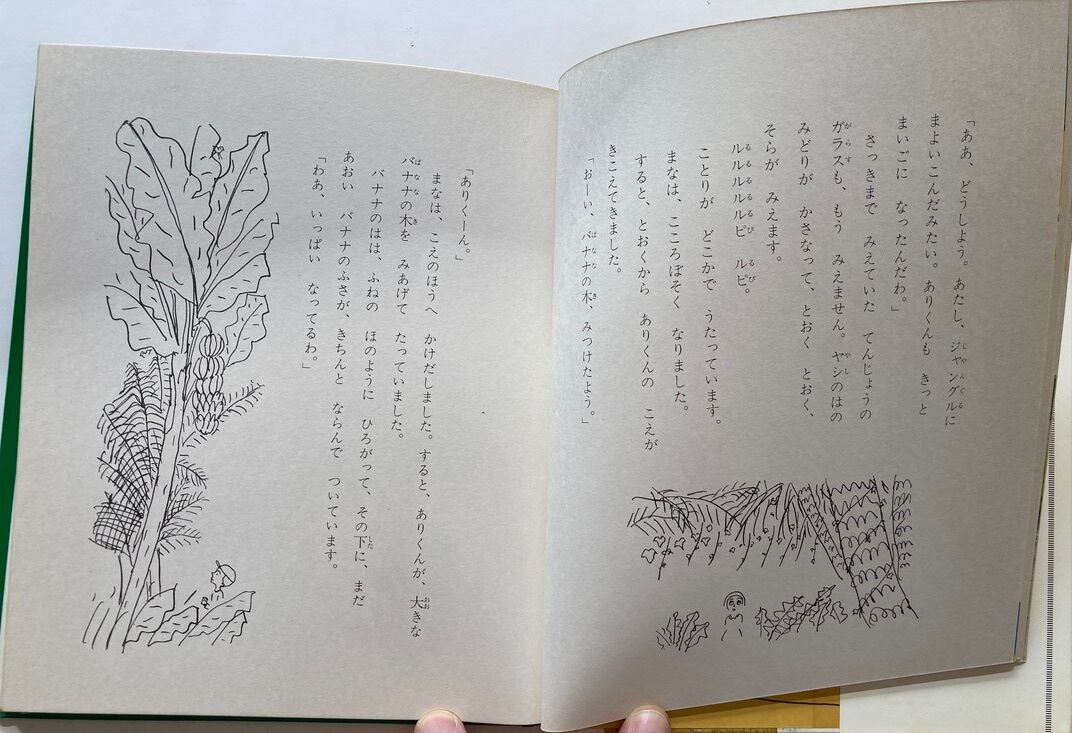 「ああ、どうしよう。あたし、ジャングルに
まよいこんだみたい。ありくんも きっと
まいごに なったんだわ。」
さっきまで みえていた てんじょうの
ガラスも、もう みえません。ヤシのはの
みどりが かさなって、とおく とおく、
そらが みえます。
ルルルルルピ ルピ。
ことりが どこかで うたっています。
まなは、こころぼそく なりました。
すると、とおくから ありくんの こえが
きこえてきました。
「おーい、バナナの木、みつけたよう。」
「ありくーん。」
まなは、こえのほうへ かけだしました。すると、ありくんが、大きな
バナナの木を みあげて たっていました。
バナナのはは、ふねの ほのように ひろがって、その下に、まだ
あおい バナナのふさが、きちんと ならんで ついています。
「わあ、いっぱい なってるわ。」